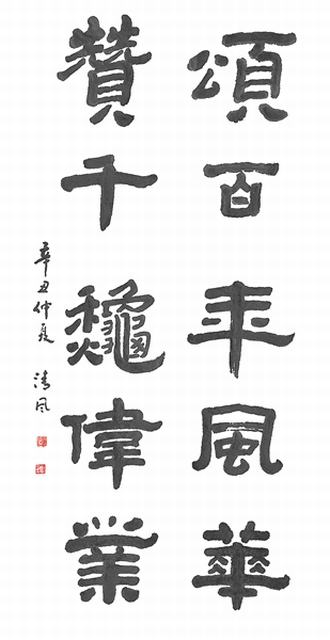 頌百年風華
贊千龝偉業
辛丑仲夏 清風